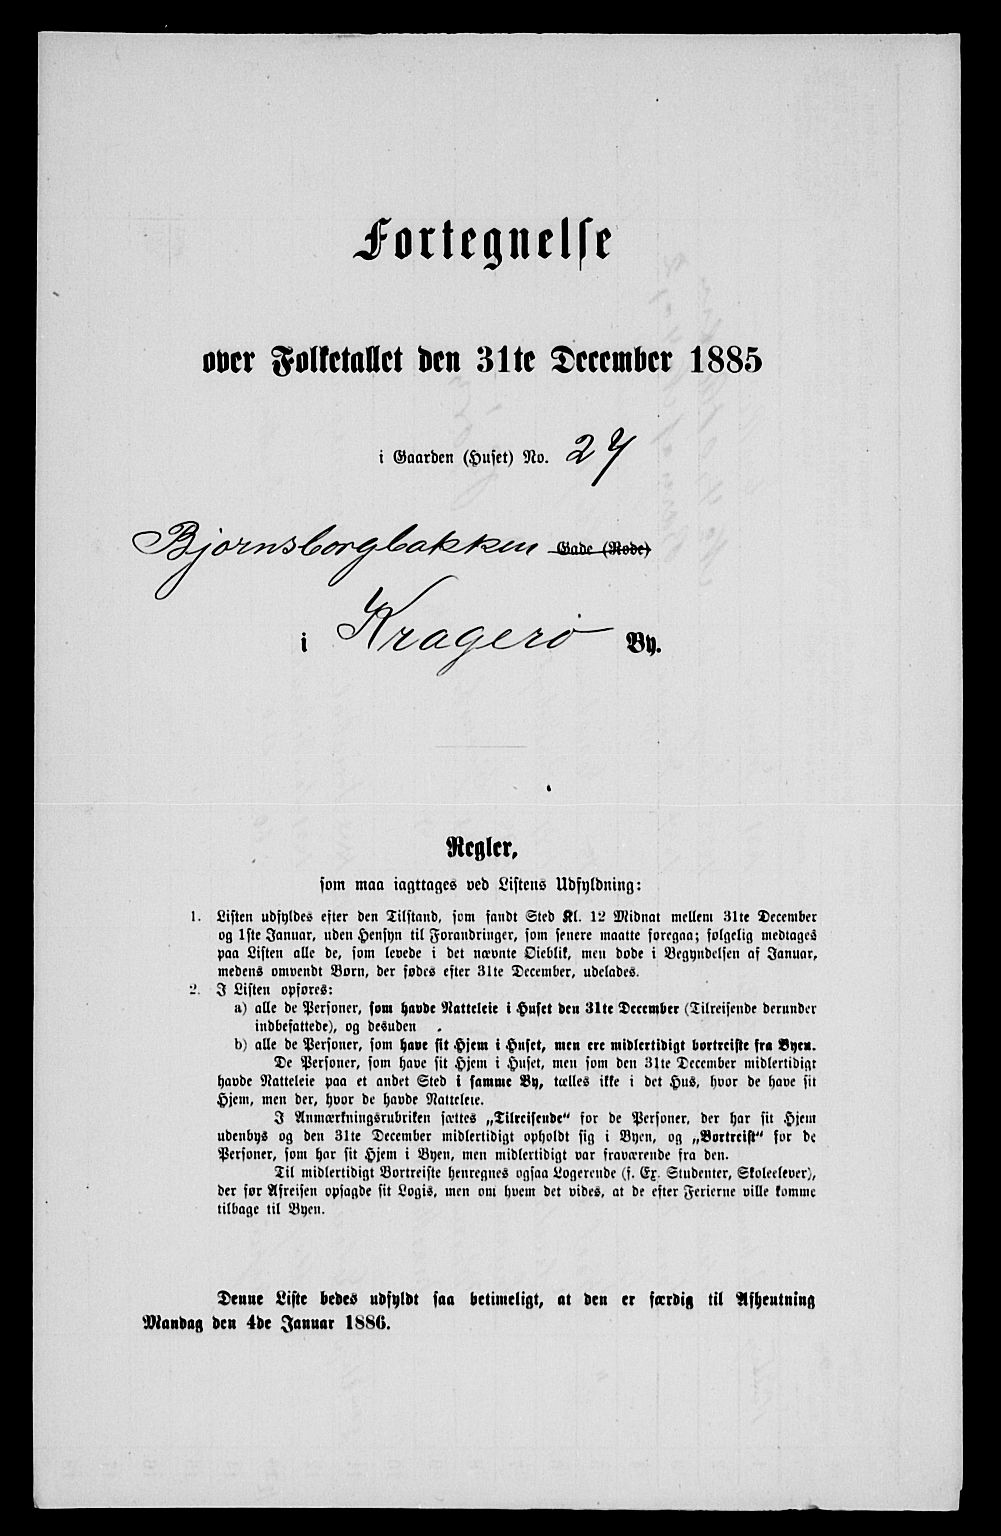 Fortegnelse
over Folketallet den 31te December 1885
i Gaarden (Huset) No. 27
Bjornsborgbakken Gade (Rode)
i Kragerø By.
Regler,
som maa iagttages ved Listens Udfyldning:
1. Listen udfyldes efter den Tilstand, som fandt Sted Kl. 12 Midnat mellem 31te December
og 1ste Januar, uden Hensyn til Forandringer, som senere maatte foregaa; følgelig medtages
paa Listen alle de, som levede i det nævnte Øieblik, men døde i Begyndelsen af Januar,
medens omvendt Børn, der fødes efter 31te December, udelades.
2. I Listen opføres:
a) alle de Personer, som havde Natteleie i Huset den 31te December (Tilreisende derunder
indbefattede), og desuden
b) alle de Personer, som have sit Hjem i Huset, men ere midlertidigt bortreiste fra Byen.
De Personer, som have sit Hjem i Huset, men som den 31te December midlertidigt
havde Natteleie paa et andet Sted i samme By, tælles ikke i det Hus, hvor de have sit
Hjem, men der, hvor de havde Natteleie.
I Anmærkningsrubriken sættes „Tilreisende“ for de Personer, der har sit Hjem
udenbys og den 31te December midlertidigt opholdt sig i Byen, og „Bortreist“ for de
Personer, som har sit Hjem i Byen, men midlertidigt var fraværende fra den.
Til midlertidigt Bortreiste henregnes ogsaa Logerende (f. Ex. Studenter, Skoleelever),
der før Afreisen opsagde sit Logis, men om hvem det vides, at de efter Ferierne ville komme
tilbage til Byen.
Denne Liste bedes udfyldt saa betimeligt, at den er færdig til Afhentning
Mandag den 4de Januar 1886.